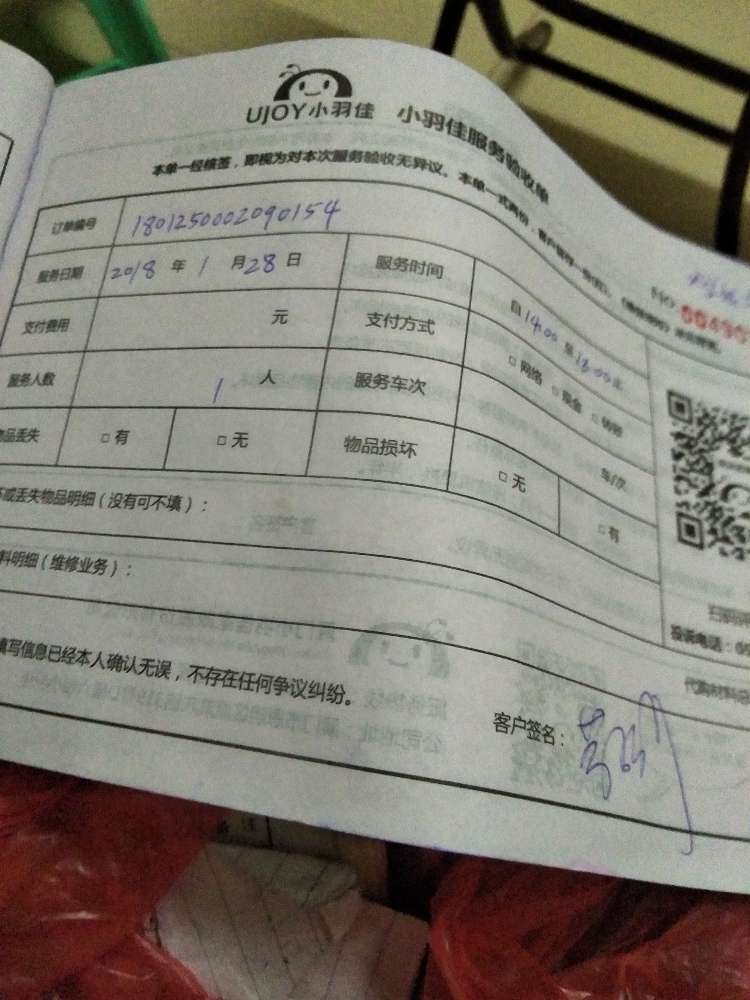 UJOY小羽佳 小羽佳服务验收单
本单一经核签，即视为对本次服务验收无异议。本单一式两份，
订单编号 1801250002090154
NO
服务日期 2018 年 1 月 28 日 服务时间 自 14:00 至 18:00 止
支付费用 元 支付方式 □ 网络 □ 现金 □ 转账
服务人数 1 人 服务车次 车/次
物品丢失 □ 有 □ 无 物品损坏 □ 无 □ 有
坏或丢失物品明细（没有可不填）：
料明细（维修业务）：
投诉电话：
代购材料
填写信息已经本人确认无误，不存在任何争议纠纷。
客户签名：